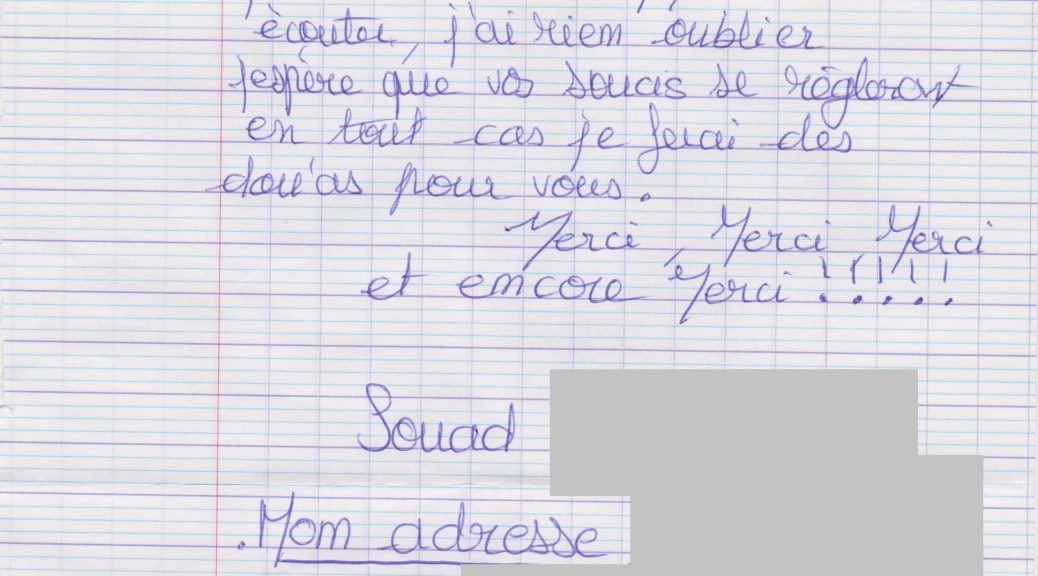 écouter, j'ai riem oublier
jespère que vos soucis se règloront
en tout cas je ferai des
dou'as pour vous.
Merci, Merci Merci
et emcore Merci !!!!!
Souad
.Mom adresse